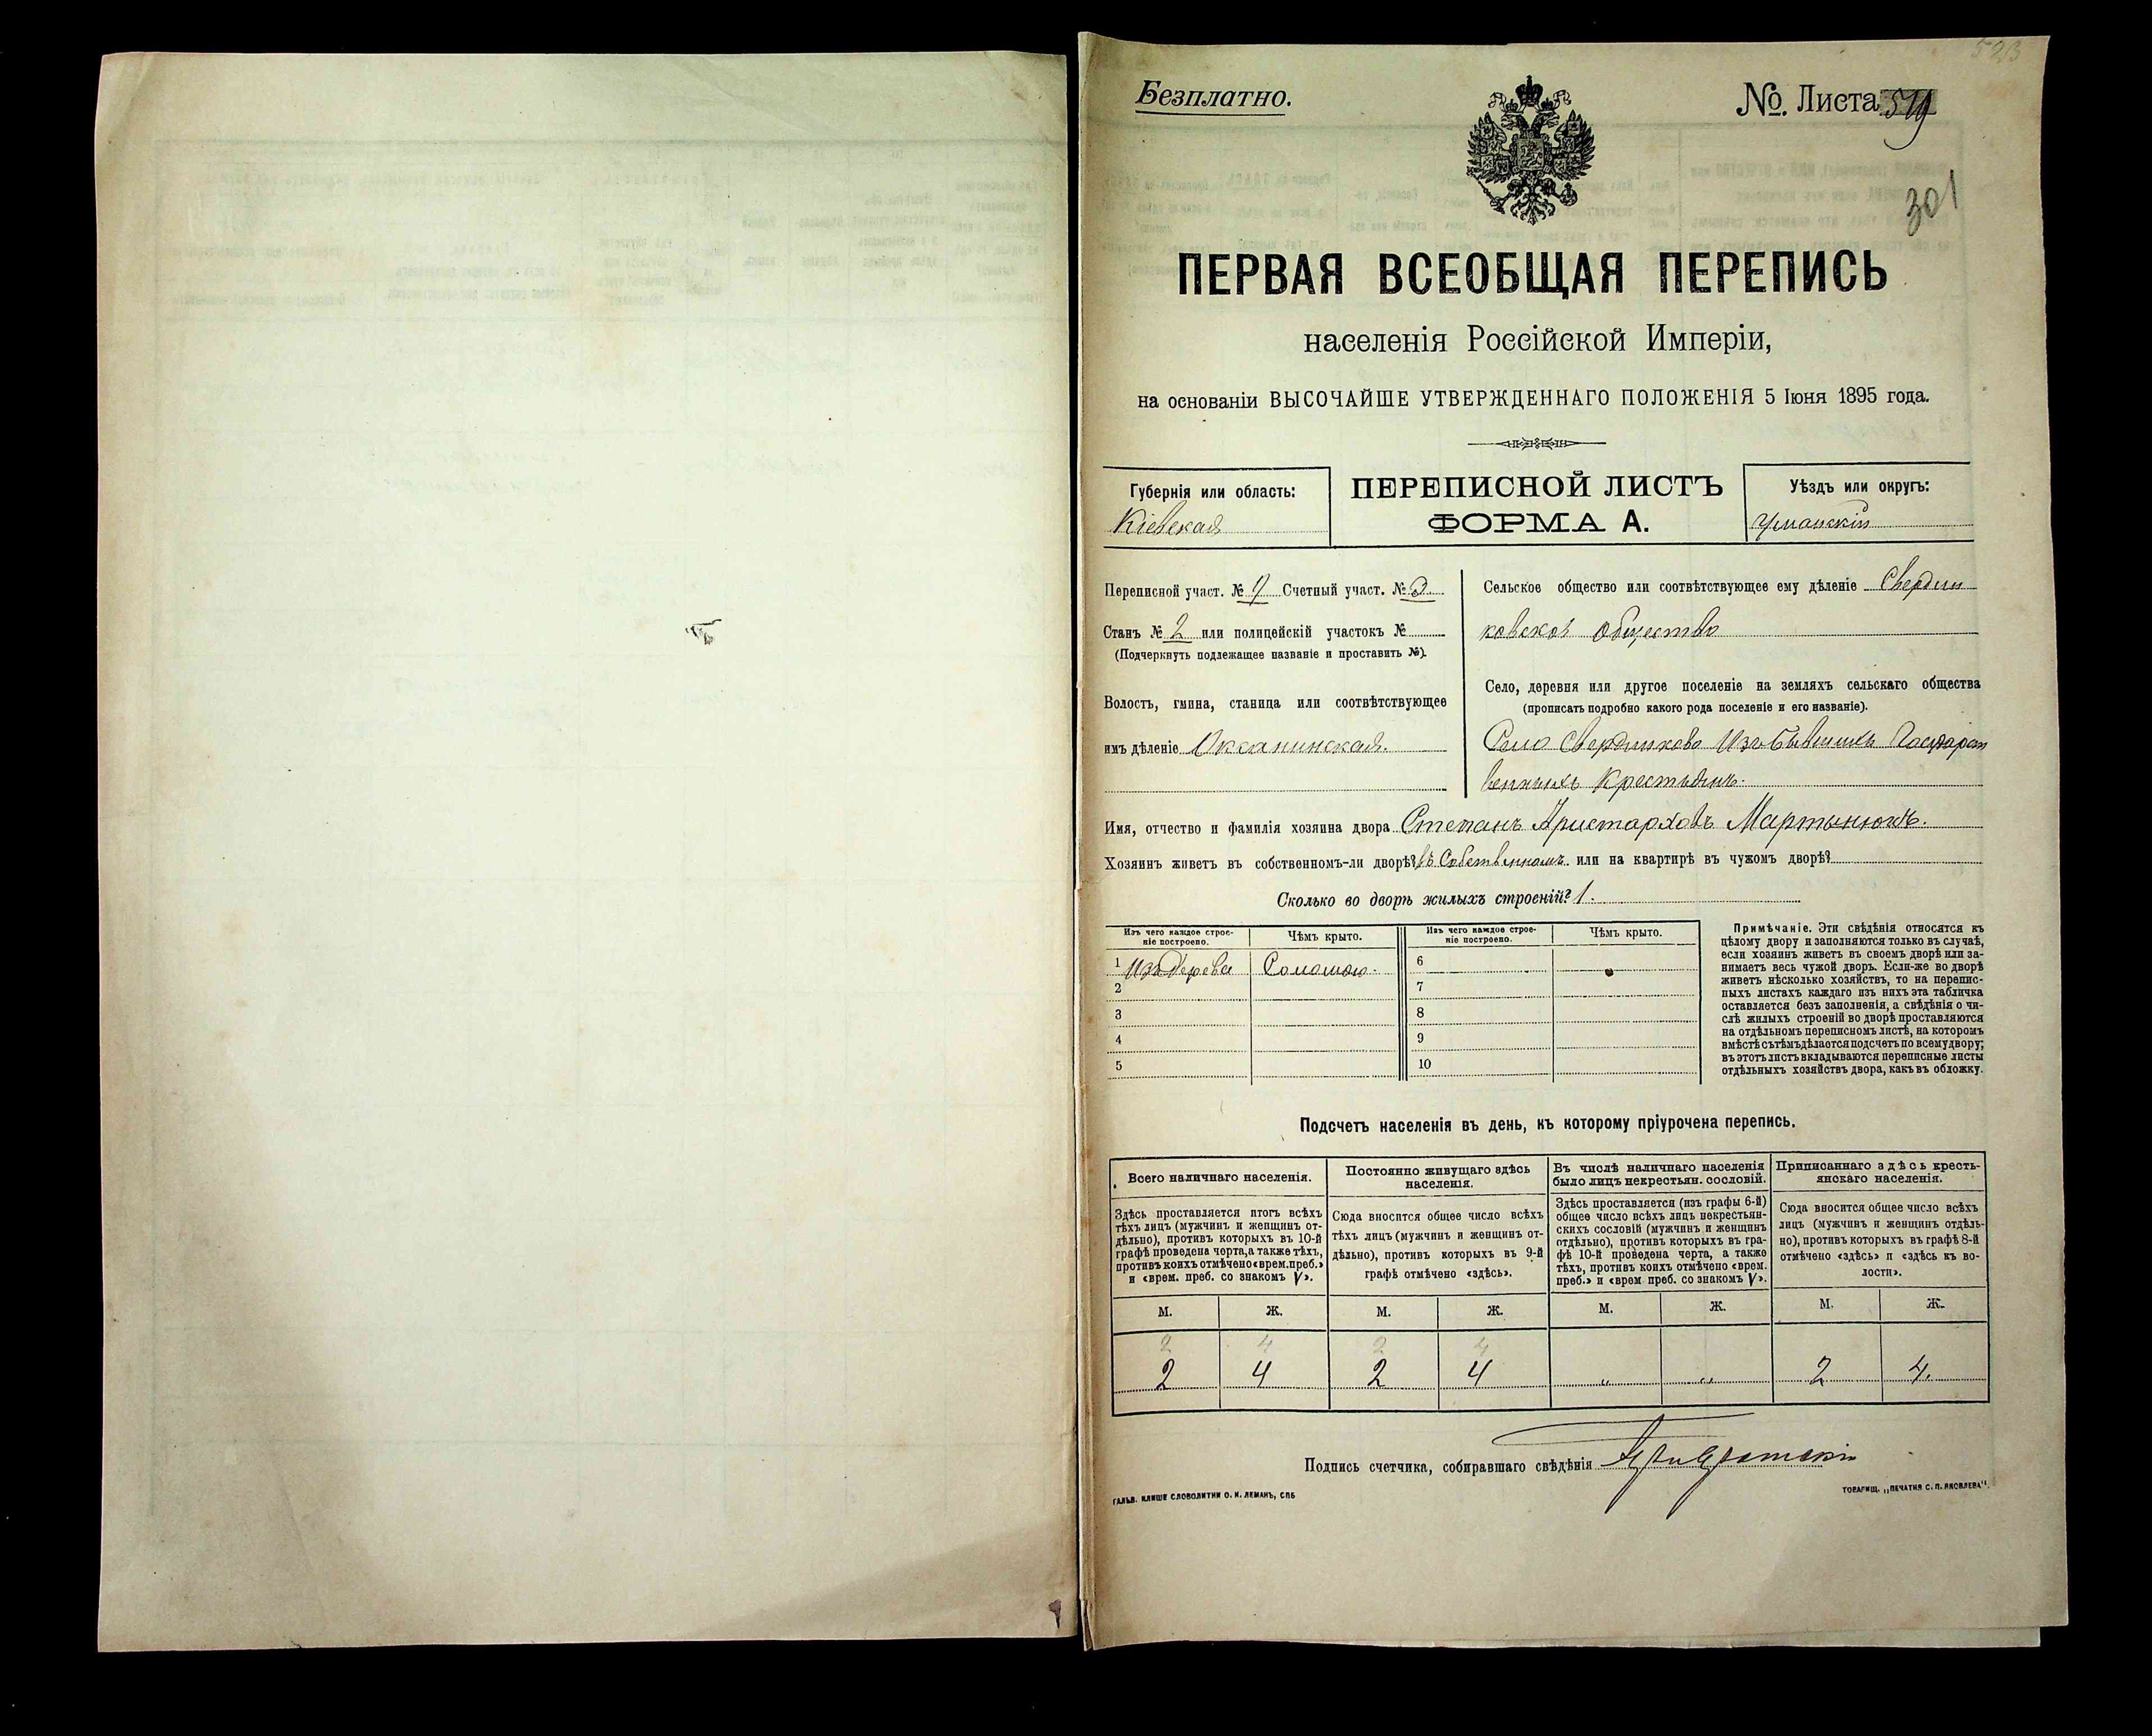 Безплатно.
№ Листа
301
ПЕРВАЯ ВСЕОБЩАЯ ПЕРЕПИСЬ
населенія Россійской Имперіи,
на основаніи ВЫСОЧАЙШЕ УТВЕРЖДЕННАГО ПОЛОЖЕНІЯ 5 Іюня 1895 года.
Губернія или область:
Кіевская
ПЕРЕПИСНОЙ ЛИСТЪ
ФОРМА А.
Уѣздъ или округъ:
Уманскій
Переписной участ. № Счетный участ. №
Станъ № 2 или полицейскій участокъ №
(Подчеркнуть подлежащее названіе и проставить №).
Волость, гмина, станица или соотвѣтствующее
имъ дѣленіе Оксанинская.
Сельское общество или соотвѣтствующее ему дѣленіе Свердли
ковское общество
Село, деревня или другое поселеніе на земляхъ сельскаго общества
(прописать подробно какого рода поселеніе и его названіе).
Село Свердликово Изъ бывшихъ Государст
венныхъ Крестьянъ.
Имя, отчество и фамилія хозяина двора Степанъ Аристарховъ Мартынюкъ.
Хозяинъ живетъ въ собственномъ-ли дворѣ? въ Собственномъ или на квартирѣ въ чужомъ дворѣ?
Сколько во дворѣ жилыхъ строеній? 1.
Изъ чего каждое строе-
ніе построено.
Чѣмъ крыто.
Изъ чего каждое строе-
ніе построено.
Чѣмъ крыто.
1 Изъ Дерева Соломою. 6
2 7
3 8
4 9
5 10
Примѣчаніе. Эти свѣдѣнія относятся къ
цѣлому двору и заполняются только въ случаѣ,
если хозяинъ живетъ въ своемъ дворѣ или за-
нимаетъ весь чужой дворъ. Если-же во дворѣ
живетъ нѣсколько хозяйствъ, то на перепис-
ныхъ листахъ каждаго изъ нихъ эта табличка
оставляется безъ заполненія, а свѣдѣнія о чи-
слѣ жилыхъ строеній во дворѣ проставляются
на отдѣльномъ переписномъ листѣ, на которомъ
вмѣстѣ съ тѣмъ дѣлается подсчетъ по всему двору;
въ этотъ листъ вкладываются переписные листы
отдѣльныхъ хозяйствъ двора, какъ въ обложку.
Подсчетъ населенія въ день, къ которому пріурочена перепись.
Всего наличнаго населенія.
Здѣсь проставляется итогъ всѣхъ
тѣхъ лицъ (мужчинъ и женщинъ от-
дѣльно), противъ которыхъ въ 10-й
графѣ проведена черта, а также тѣхъ,
противъ коихъ отмѣчено «врем. преб.»
и «врем. преб. со знакомъ V».
Постоянно живущаго здѣсь
населенія.
Сюда вносится общее число всѣхъ
тѣхъ лицъ (мужчинъ и женщинъ от-
дѣльно), противъ которыхъ въ 9-й
графѣ отмѣчено «здѣсь».
Въ числѣ наличнаго населенія
было лицъ некрестьян. сословій.
Здѣсь проставляется (изъ графы 6-й)
общее число всѣхъ лицъ некрестьян-
скихъ сословій (мужчинъ и женщинъ
отдѣльно), противъ которыхъ въ гра-
фѣ 10-й проведена черта, а также
тѣхъ, противъ коихъ отмѣчено «врем.
преб.» и «врем преб. со знакомъ V».
Приписаннаго здѣсь кресть-
янскаго населенія.
Сюда вносится общее число всѣхъ
лицъ (мужчинъ и женщинъ отдѣль-
но), противъ которыхъ въ графѣ 8-й
отмѣчено «здѣсь» и «здѣсь въ во-
лости».
М. Ж. М. Ж. М. Ж. М. Ж.
2 4 2 4
2 4 2 4 „ „ 2 4.
Подпись счетчика, собиравшаго свѣдѣнія
ГАЛЬВ. КЛИШЕ СЛОВОЛИТНИ О. И. ЛЕМАНЪ, СПБ
ТОВАРИЩ. „ПЕЧАТНЯ С. П. ЯКОВЛЕВА“.